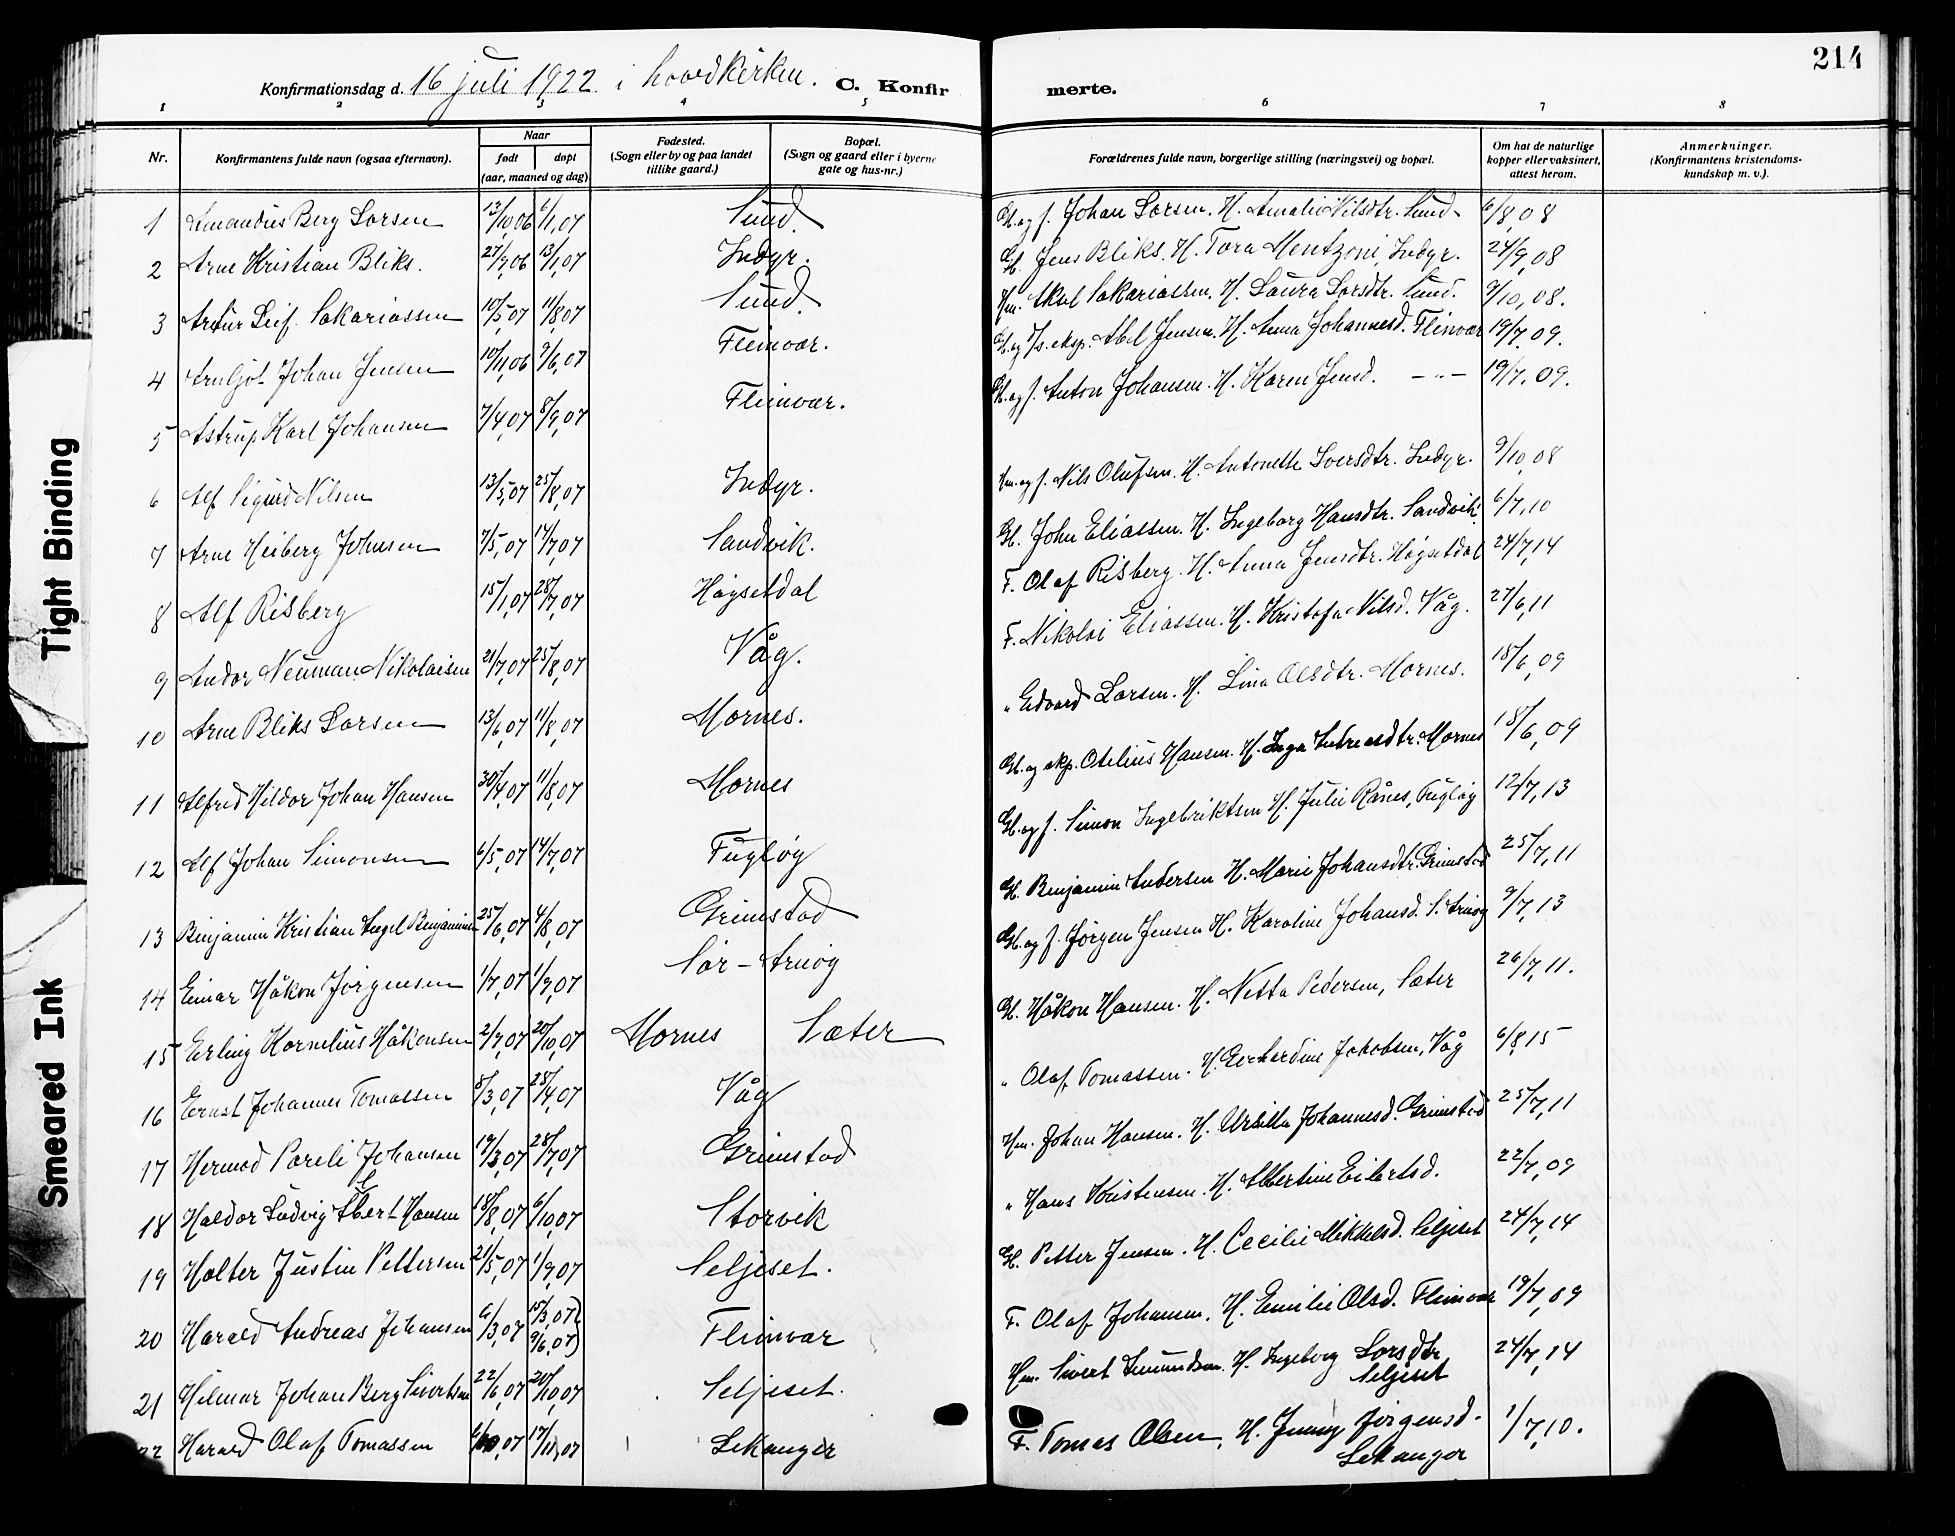 214
Konfirmationsdag d. 16 juli 1922 i hovedkirken. C. Konfir merte.
1 2 3 4 5 6 7 8
Nr. Konfirmantens fulde navn (ogsaa efternavn). Naar født døpt (aar, maaned og dag) Fødested. (Sogn eller by og paa landet tillike gaard.) Bopæl. (Sogn og gaard eller i byerne gate og hus-nr.) Forældrenes fulde navn, borgerlige stilling (næringsvei) og bopæl. Om hat de naturlige kopper eller vaksinert, attest herom. Anmerkninger. (Konfirmantens kristendoms-kundskap m. v.).
1 Amandus Berg Larsen 13/10,06 6/1,07 Sund. G. og f. Johan Larsen. H. Amalie Nilsdtr. Sund. 6/8,08
2 Arne Kristian Bliks. 27/7,06 13/1,07 Indyr. G. Jens Bliks. H. Tora Mentzoni, Indyr. 24/9,08
3 Artur Leif Sakariassen 10/5,07 11/8,07 Sund. Hm. Skul Sakariassen. H. Laura Larsdtr. Sund. 9/10,08.
4 Arnljot Johan Jensen 10/11,06 9/6,07 Fleinvær. G. og d/s. eksp. Abel Jensen. H. Anna Johannesd. Fleinvær 19/7.09.
5 Astrup Karl Johansen 7/4,07 8/9,07 Fleinvær. G. og f. Anton Johansen. H. Karen Jensd. — " — 19/7.09.
6 Alf Sigurd Nilsen 13/5,07 25/8,07 Indyr. Hm. og f. Nils Olufsen. H. Antonette Iversdtr. Indyr. 9/10,08
7 Arne Heiberg Johnsen 7/5,07 14/7,07 Sandvik. G. John Eliassen. H. Ingeborg Hansdtr. Sandvik. 6/7,10
8 Alf Risberg 15/1,07 28/7,07 Høgsetdal F. Olaf Risberg. H. Anna Jensdtr. Høgsetdal 24/7,14
9 Andor Neuman Nikolaisen 21/7,07 25/8,07 Våg. F. Nikolai Eliassen. H. Kristofa Nilsd. Våg. 27/6,11
10 Arne Bliks Larsen 13/6,07 11/8,07 Mornes. " Edvard Larsen. H. Lina Olsdtr. Mornes. 18/6,09
11 Alfred Hildor Johan Hansen 30/4,07 11/8,07 Mornes G. og skp. Otelius Hansen. H. Inga Andreasdtr. Mornes 18/6,09
12 Alf Johan Simonsen 6/5,07 14/7,07 Fugløy G. og f. Simon Ingebriktsen H. Julie Rånes, Fugløy 12/7,13
13 Benjamin Kristian Angel Benjaminsen 25/6,07 4/8,07 Grimstad G. Benjamin Andersen H. Marie Johansdtr. Grimstad 25/7,11
14 Einar Håkon Jørgensen 1/7,07 1/9,07 Sør-Arnøy G. og f. Jørgen Jensen H. Karoline Johansd. S. Arnøy 9/7,13
15 Erling Kornelius Håkonsen 2/7,07 20/10,07 Mornes Sæter G. Håkon Hansen. H. Netta Pedersen, Sæter 26/7,11.
16 Ernst Johannes Tomassen 8/3,07 28/4,07 Våg " Olaf Tomassen. H. Gerhardine Jakobsen, Våg 6/8,15
17 Hermod Pareli Johansen 19/3,07 28/7,07 Grimstad Hm. Johan Hansen. H. Ursilla Johannesd. Grimstad 25/7,11
18 Haldor Ludvig Albert Hansen 18/8,07 6/10,07 Storvik " Hans Kristensen. H. Albertine Eilertsd. 22/7,09
19 Halter Justin Pettersen 21/5,07 1/9,07 Seljeset. G. Petter Jensen. H. Cecilie Mikkelsd. Seljeset 24/7,14
20 Harald Andreas Johansen 6/3,07 15/3,07) 9/6,07) Fleinvær F. Olaf Johansen. H. Emilie Olsd. Fleinvær 19/7,09
21 Hilmar Johan Berg Sivertsen 22/6,07 20/10,07 Seljeset. Hm. Sivert Amundsen. H. Ingeborg Larsdtr. Seljeset 24/7,14
22 Harald Olaf Tomassen 17/11,07 Lekanger F. Tomas Olsen, H. Jenny Jørgensd. Lekanger 1/7,10.
Tight Binding
Smeared Ink